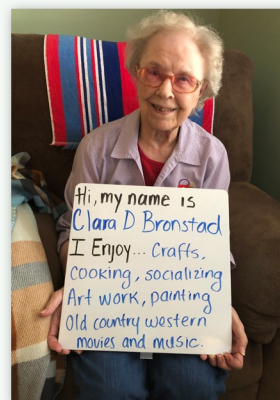 Hi, my name is
Clara D Bronstad
I Enjoy... Crafts,
cooking, socializing
Art work, painting
Old country western
movies and music.